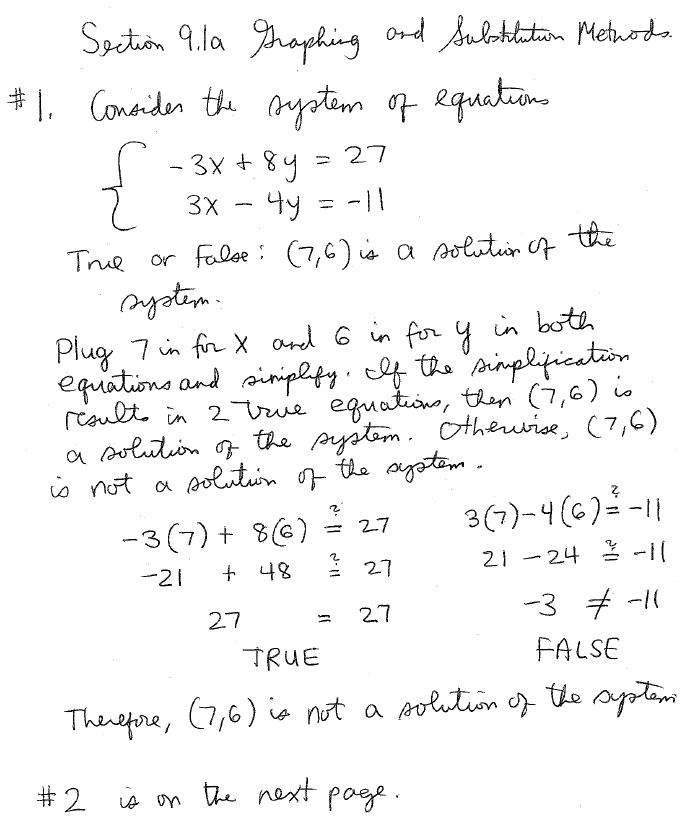 Section 9.1a Graphing and Substitution Methods.
#1. Consider the system of equations
{ -3x + 8y = 27
3x - 4y = -11
True or False: (7,6) is a solution of the
system.
Plug 7 in for x and 6 in for y in both
equations and simplify. If the simplification
results in 2 true equations, then (7,6) is
a solution of the system. Otherwise, (7,6)
is not a solution of the system.
-3(7) + 8(6) ≟ 27 3(7)-4(6) ≟ -11
-21 + 48 ≟ 27 21 - 24 ≟ -11
27 = 27 -3 ≠ -11
TRUE FALSE
Therefore, (7,6) is not a solution of the system
#2 is on the next page.